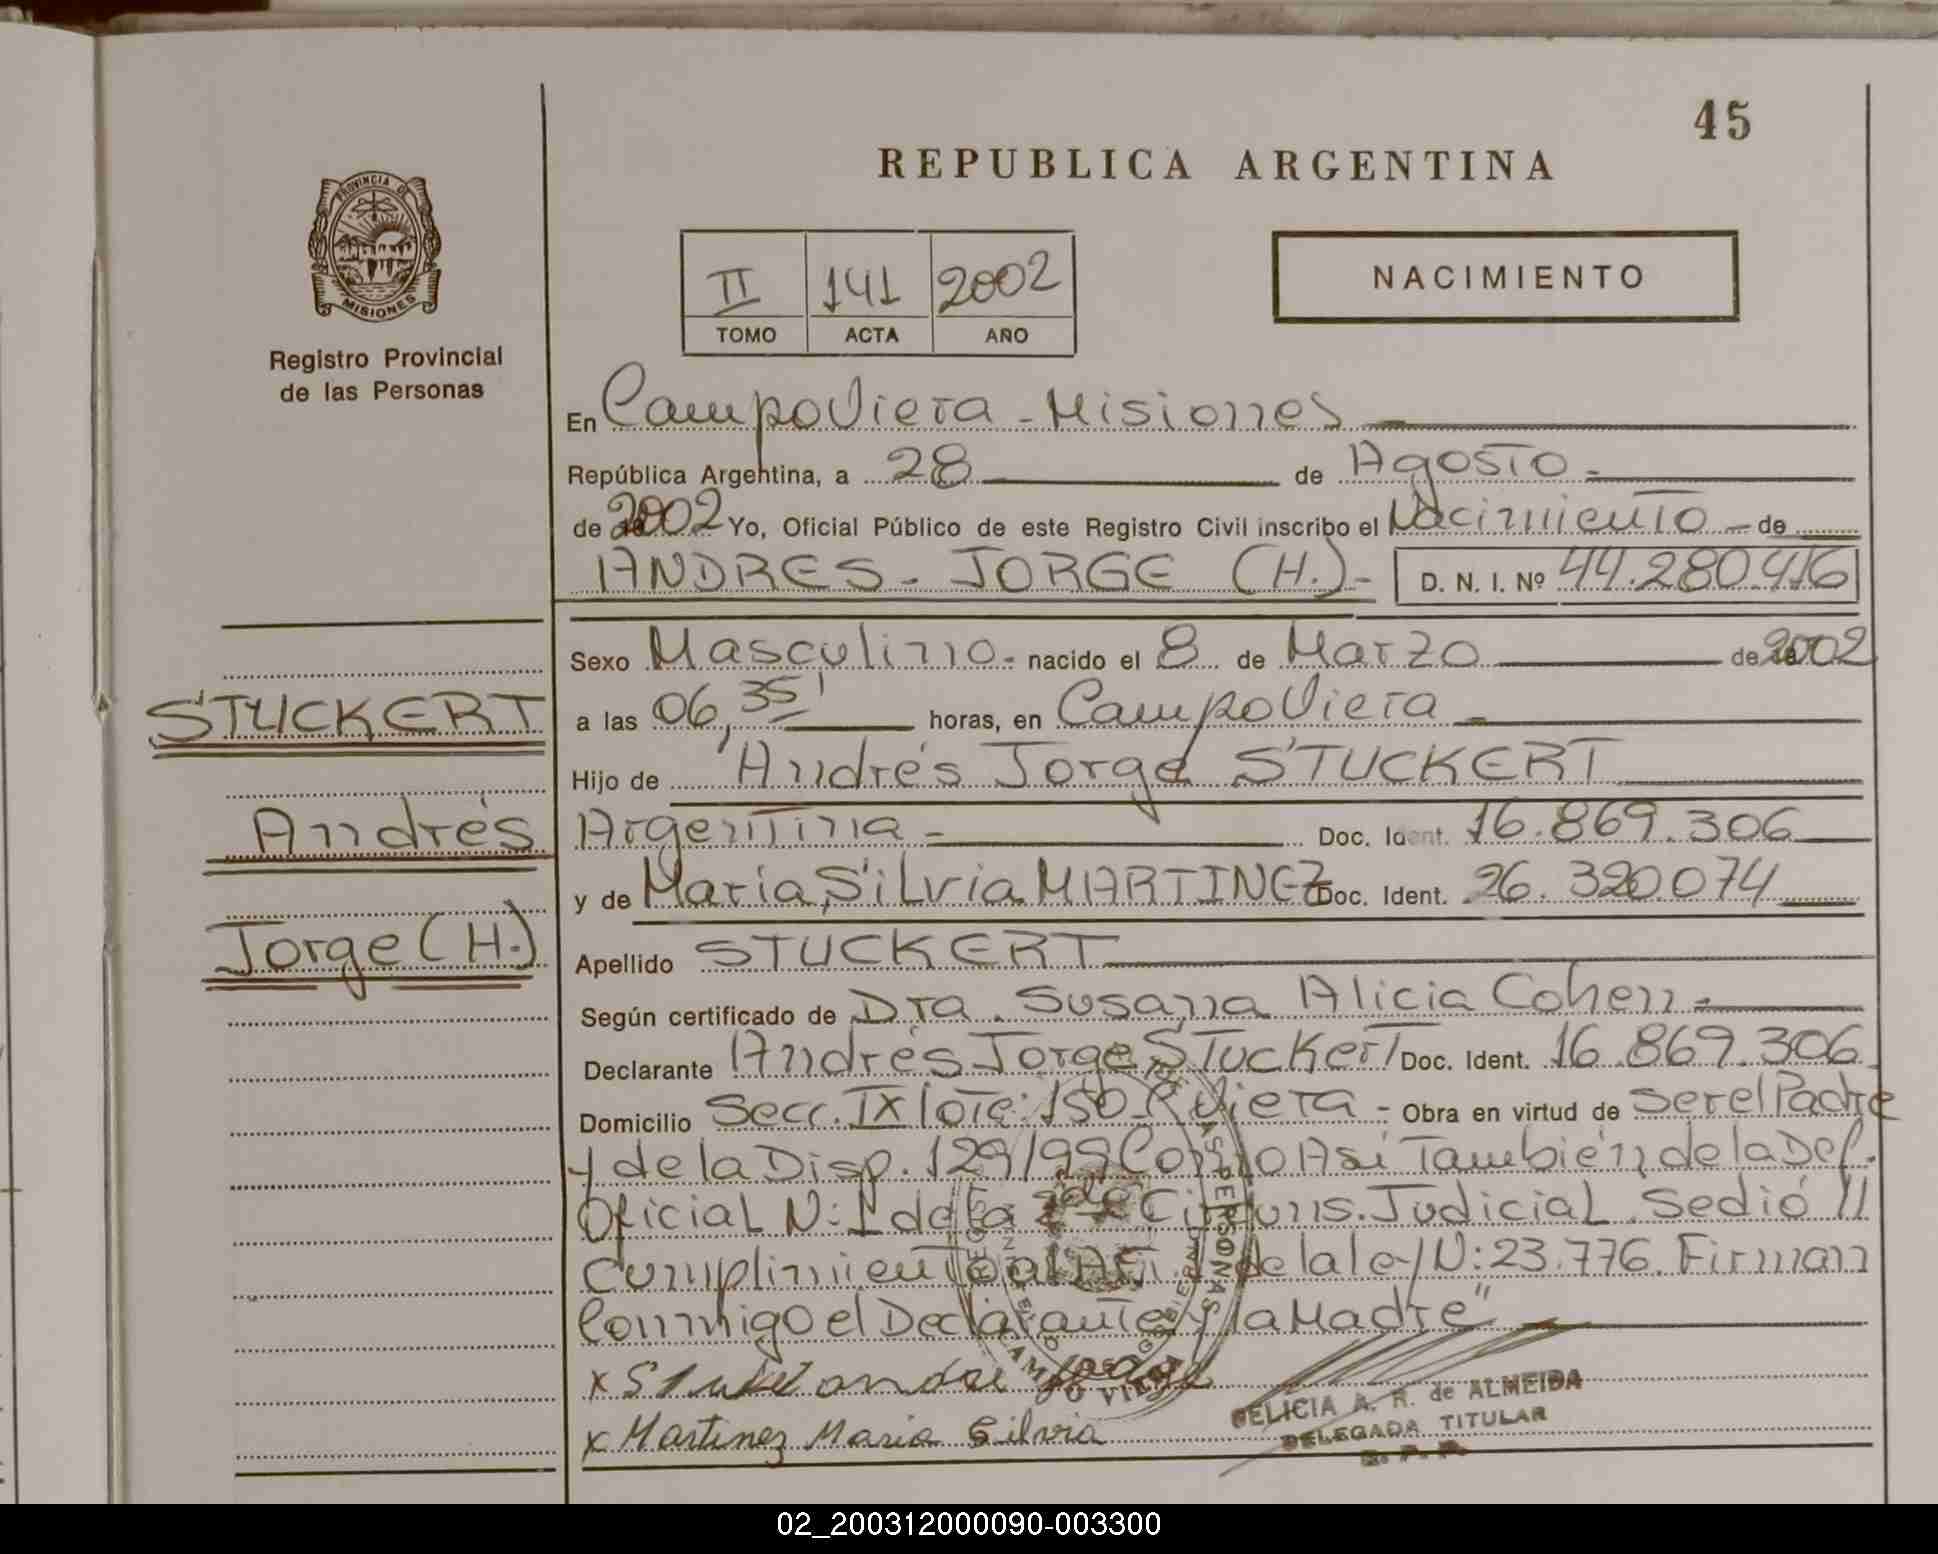 45
REPUBLICA ARGENTINA
PROVINCIA DE
MISIONES
Registro Provincial
de las Personas
II 141 2002
TOMO ACTA AÑO
NACIMIENTO
En Campo Viera - Misiones
República Argentina, a 28 de Agosto -
de 2002 Yo, Oficial Público de este Registro Civil inscribo el Nacimiento - de
ANDRES - JORGE (H.) - D. N. I. Nº 44.280.416
Sexo Masculino - nacido el 8 de Marzo de 2002
STUCKERT
a las 06,35' horas, en Campo Viera -
Hijo de Andrés Jorge STUCKERT
Andrés
Argentina - Doc. Ident. 16.869.306
y de María Silvia MARTINEZ Doc. Ident. 26.320.074
Jorge (H.)
Apellido STUCKERT
Según certificado de Dra. Susana Alicia Cohen -
Declarante Andrés Jorge Stuckert Doc. Ident. 16.869.306
Domicilio Secc. IX lote: 150 Viera - Obra en virtud de ser el Padre
y de la Disp. 129/99 Como Así También de la Def.
Oficial N: 1 de la 2da Circuns. Judicial. Se dió
Cumplimiento al Art. de la ley N: 23.776. Firman
Conmigo el Declarante y la Madre"
x Stuckert andre jorge
x Martinez Maria Silvia
FELICIA A. R. de ALMEIDA
DELEGADA TITULAR
R. P. P.
02_200312000090-003300